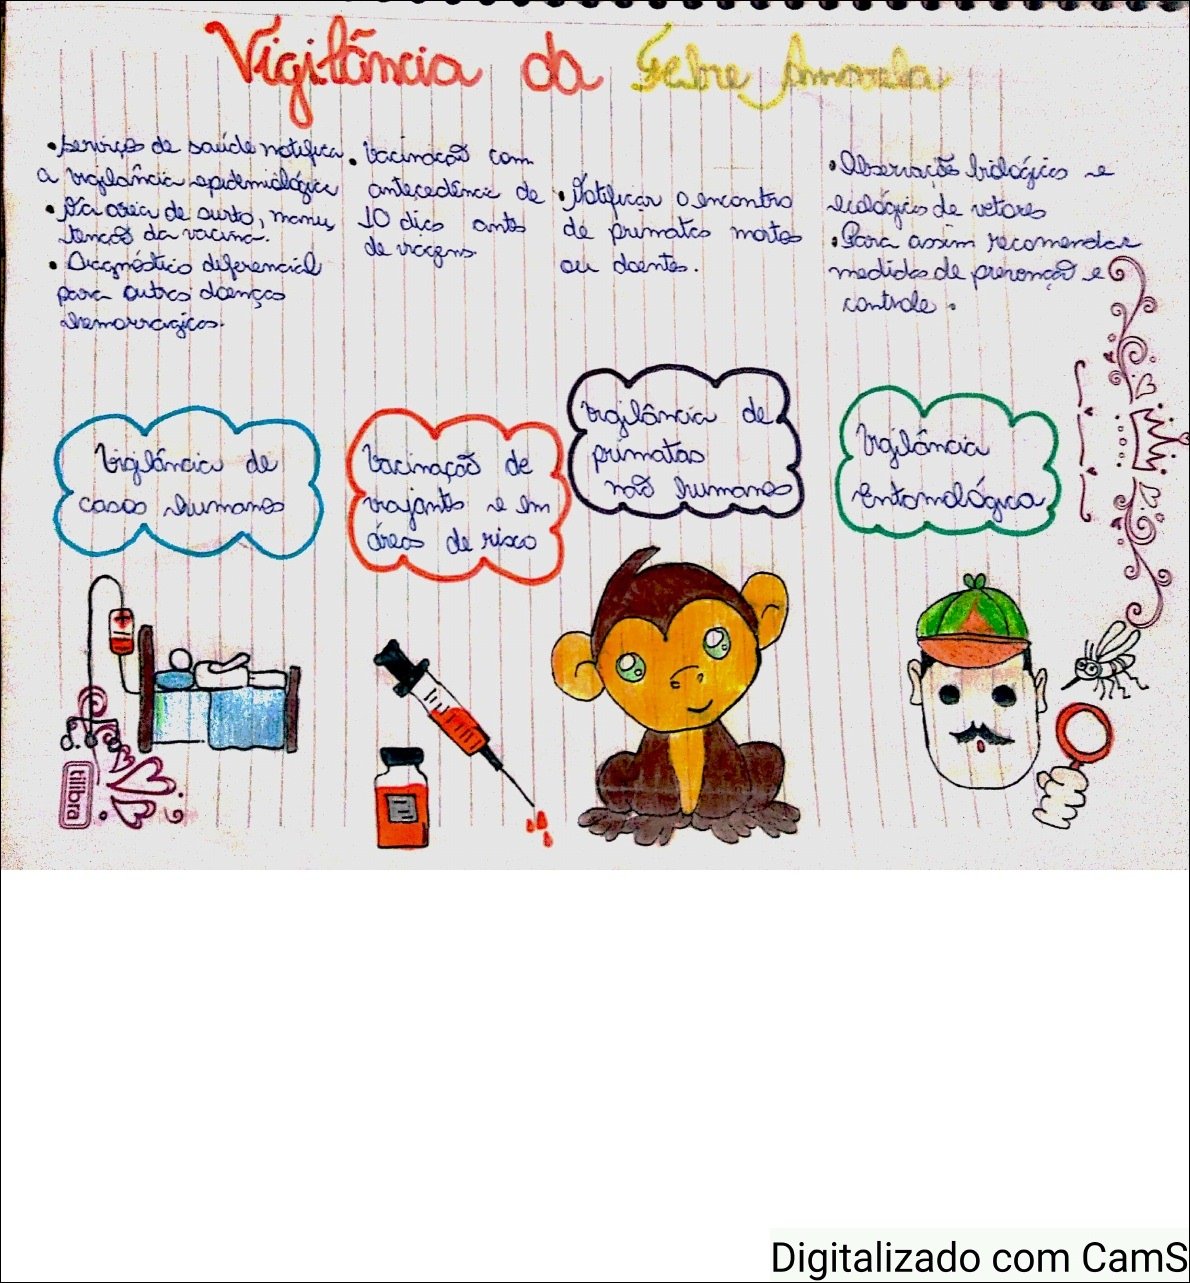 Vigilância da Febre Amarela
• Serviços de saúde notifica
a vigilância epidemiológica
• Na area de surto, manu
tencão da vacina.
• Diagnóstico diferencial
para outras doenças
hemorragicas.
• Vacinação com
antecedência de
10 dias antes
de viagens.
• Notificar o encontro
de primatas mortos
ou doentes.
• Observação biológicas e
ecológicas de vetores
• Para assim recomendar
medidas de prevenção e
controle.
Vigilância de
casos humanos
Vacinação de
viajantes e em
áreas de risco
Vigilância de
primatas
não humanos
Vigilância
Entomológica
tilibra
Digitalizado com CamS